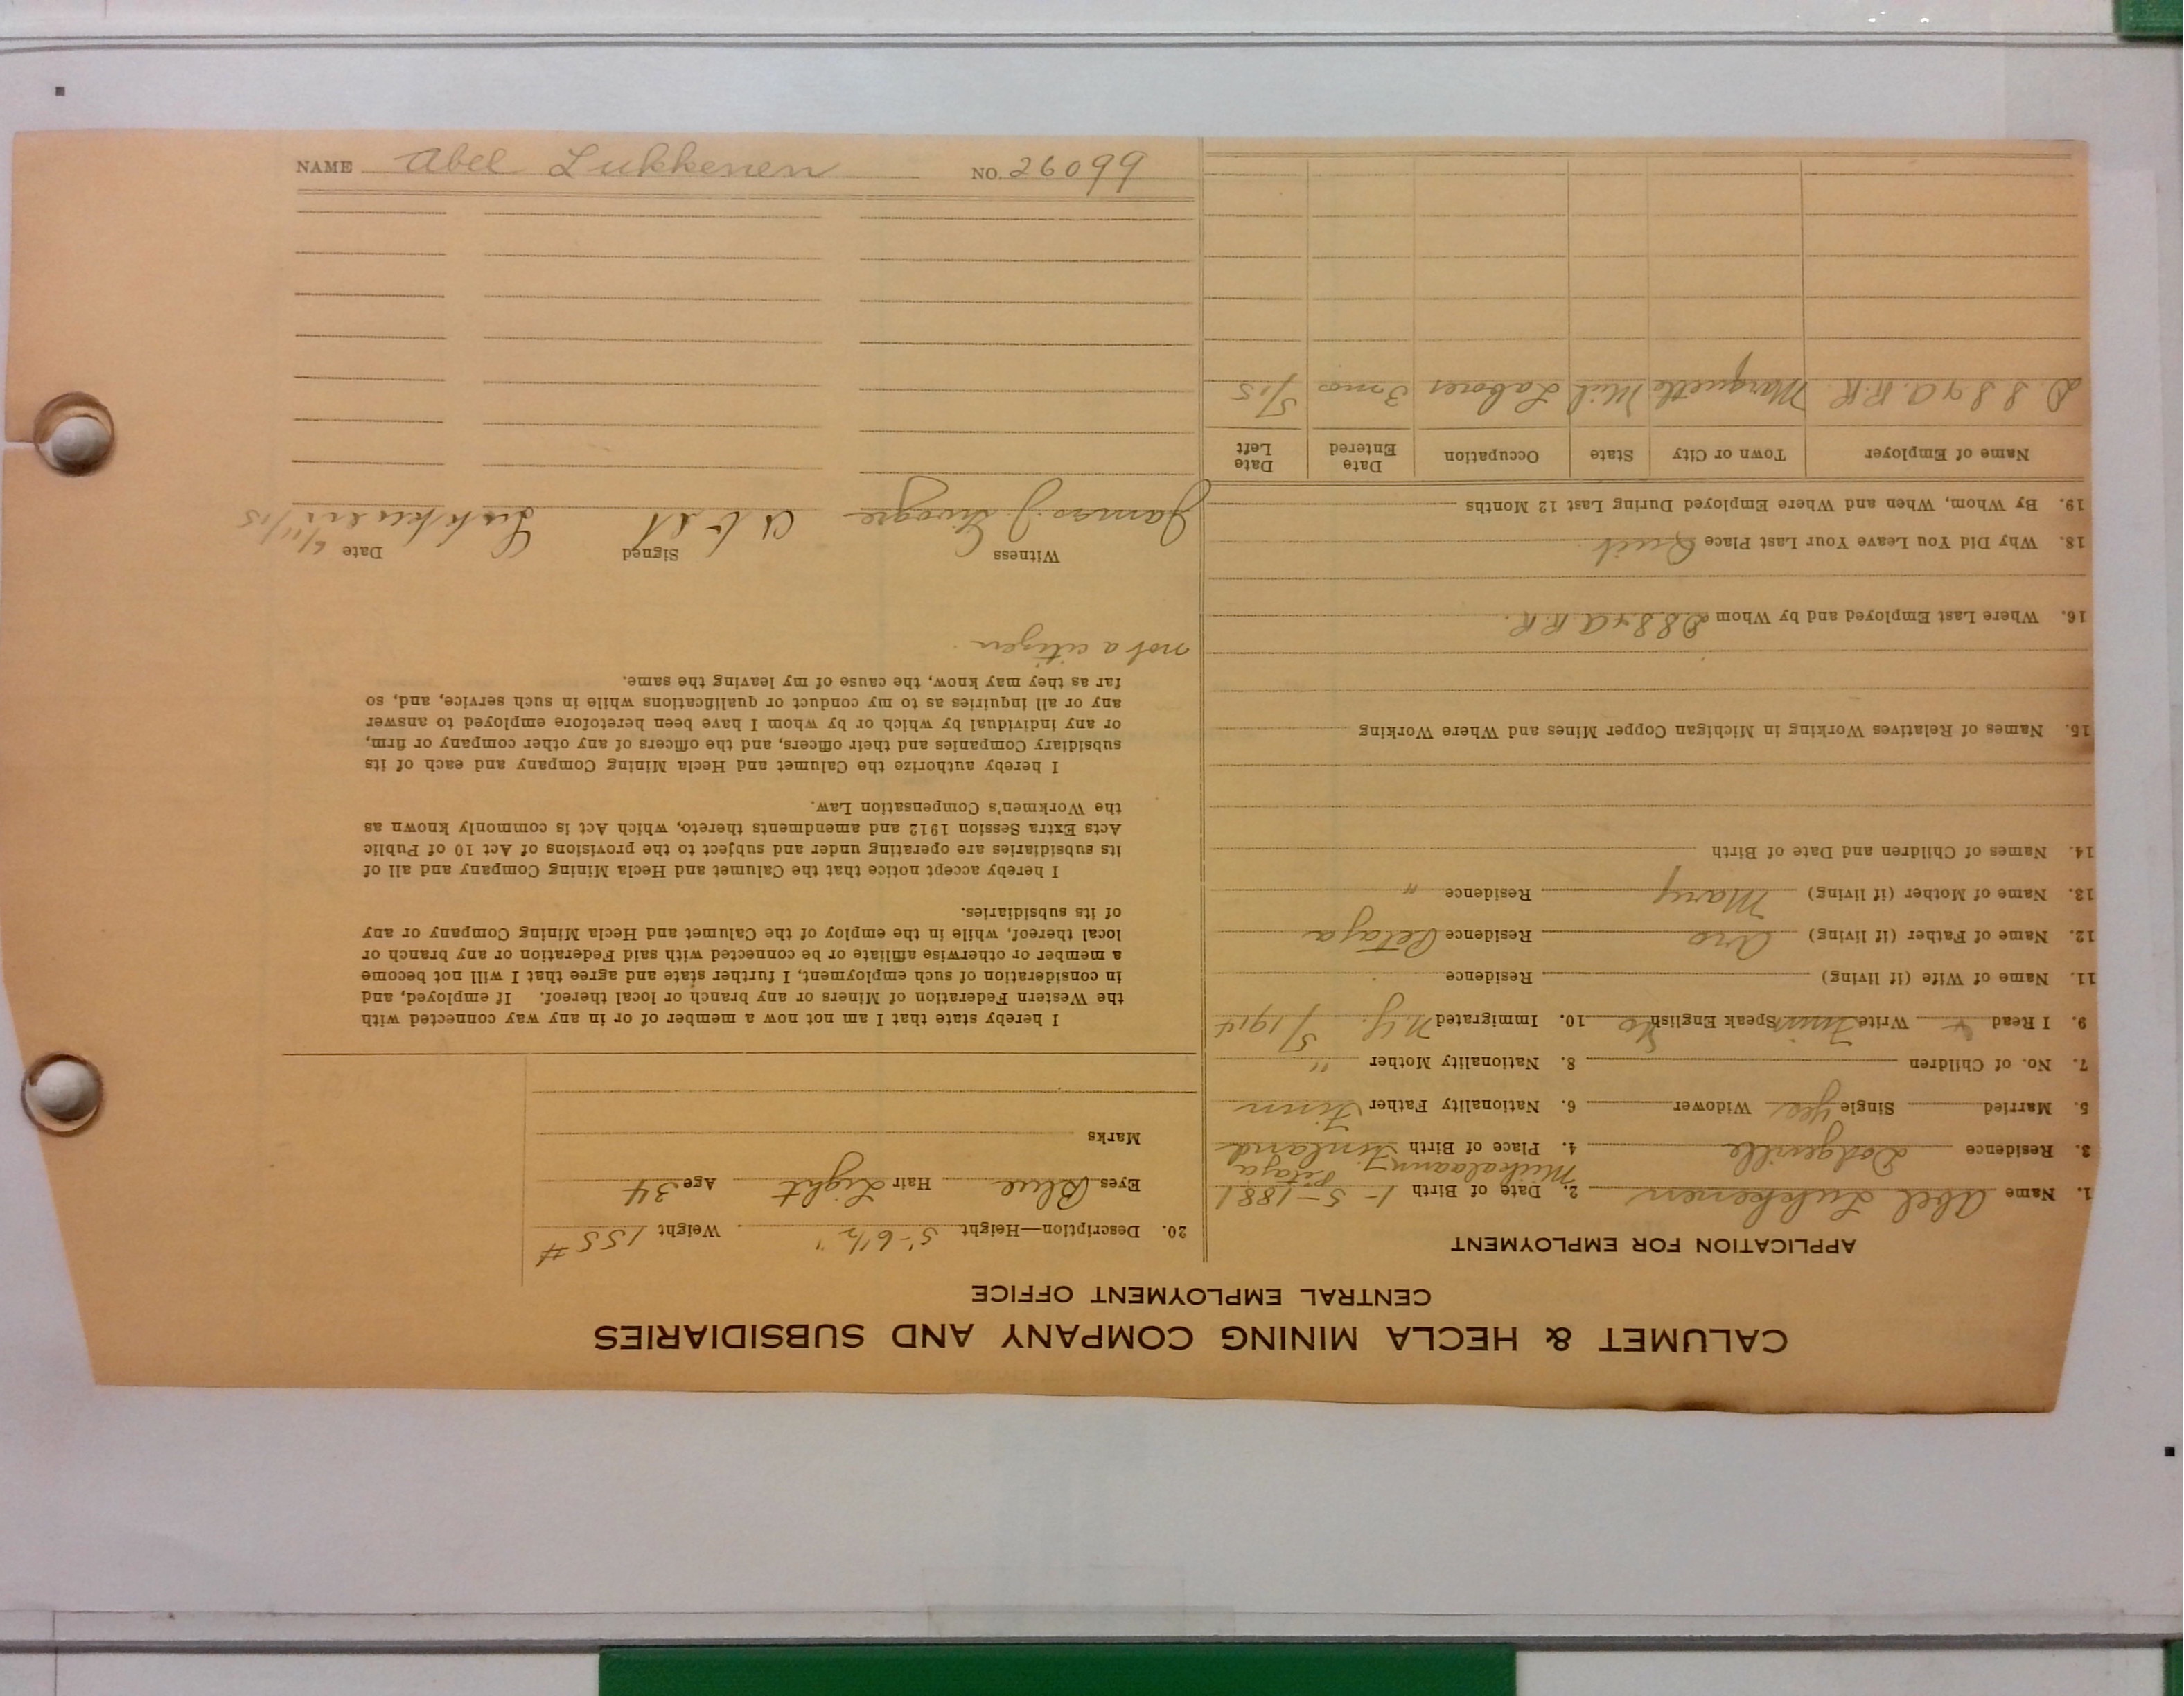 CALUMET & HECLA MINING COMPANY AND SUBSIDIARIES
CENTRAL EMPLOYMENT OFFICE
APPLICATION FOR EMPLOYMENT
1. Name Abel Lukkenen 2. Date of Birth 1-5-1881
3. Residence Dodgeville 4. Place of Birth Finland
5. Married Single Yes Widower 6. Nationality Father Finn
7. No. of Children 8. Nationality Mother "
9. I Read Write Finn Speak English No 10. Immigrated N.Y. 5/1914
11. Name of Wife (if living) Residence
12. Name of Father (if living) Residence Petaja
13. Name of Mother (if living) Mary Residence "
14. Names of Children and Date of Birth
15. Names of Relatives Working in Michigan Copper Mines and Where Working
16. Where Last Employed and by Whom D.S.S & A.R.R.
18. Why Did You Leave Your Last Place Quit
19. By Whom, When and Where Employed During Last 12 Months
Name of Employer Town or City State Occupation Date Entered Date Left
D.S.S & A.R.R. Marquette Mich Laborer 3 mos 5/15
20. Description—Height 5'-6 1/2" Weight 155 #
Eyes Blue Hair Light Age 34
Marks
I hereby state that I am not now a member of or in any way connected with
the Western Federation of Miners or any branch or local thereof. If employed, and
in consideration of such employment, I further state and agree that I will not become
a member or otherwise affiliate or be connected with said Federation or any branch or
local thereof, while in the employ of the Calumet and Hecla Mining Company or any
of its subsidiaries.
I hereby accept notice that the Calumet and Hecla Mining Company and all of
its subsidiaries are operating under and subject to the provisions of Act 10 of Public
Acts Extra Session 1912 and amendments thereto, which Act is commonly known as
the Workmen's Compensation Law.
I hereby authorize the Calumet and Hecla Mining Company and each of its
subsidiary Companies and their officers, and the officers of any other company or firm,
or any individual by which or by whom I have been heretofore employed to answer
any or all inquiries as to my conduct or qualifications while in such service, and, so
far as they may know, the cause of my leaving the same.
not a citizen.
Witness Signed Date 6/11/15
James J
NAME Abel Lukkenen NO. 26099